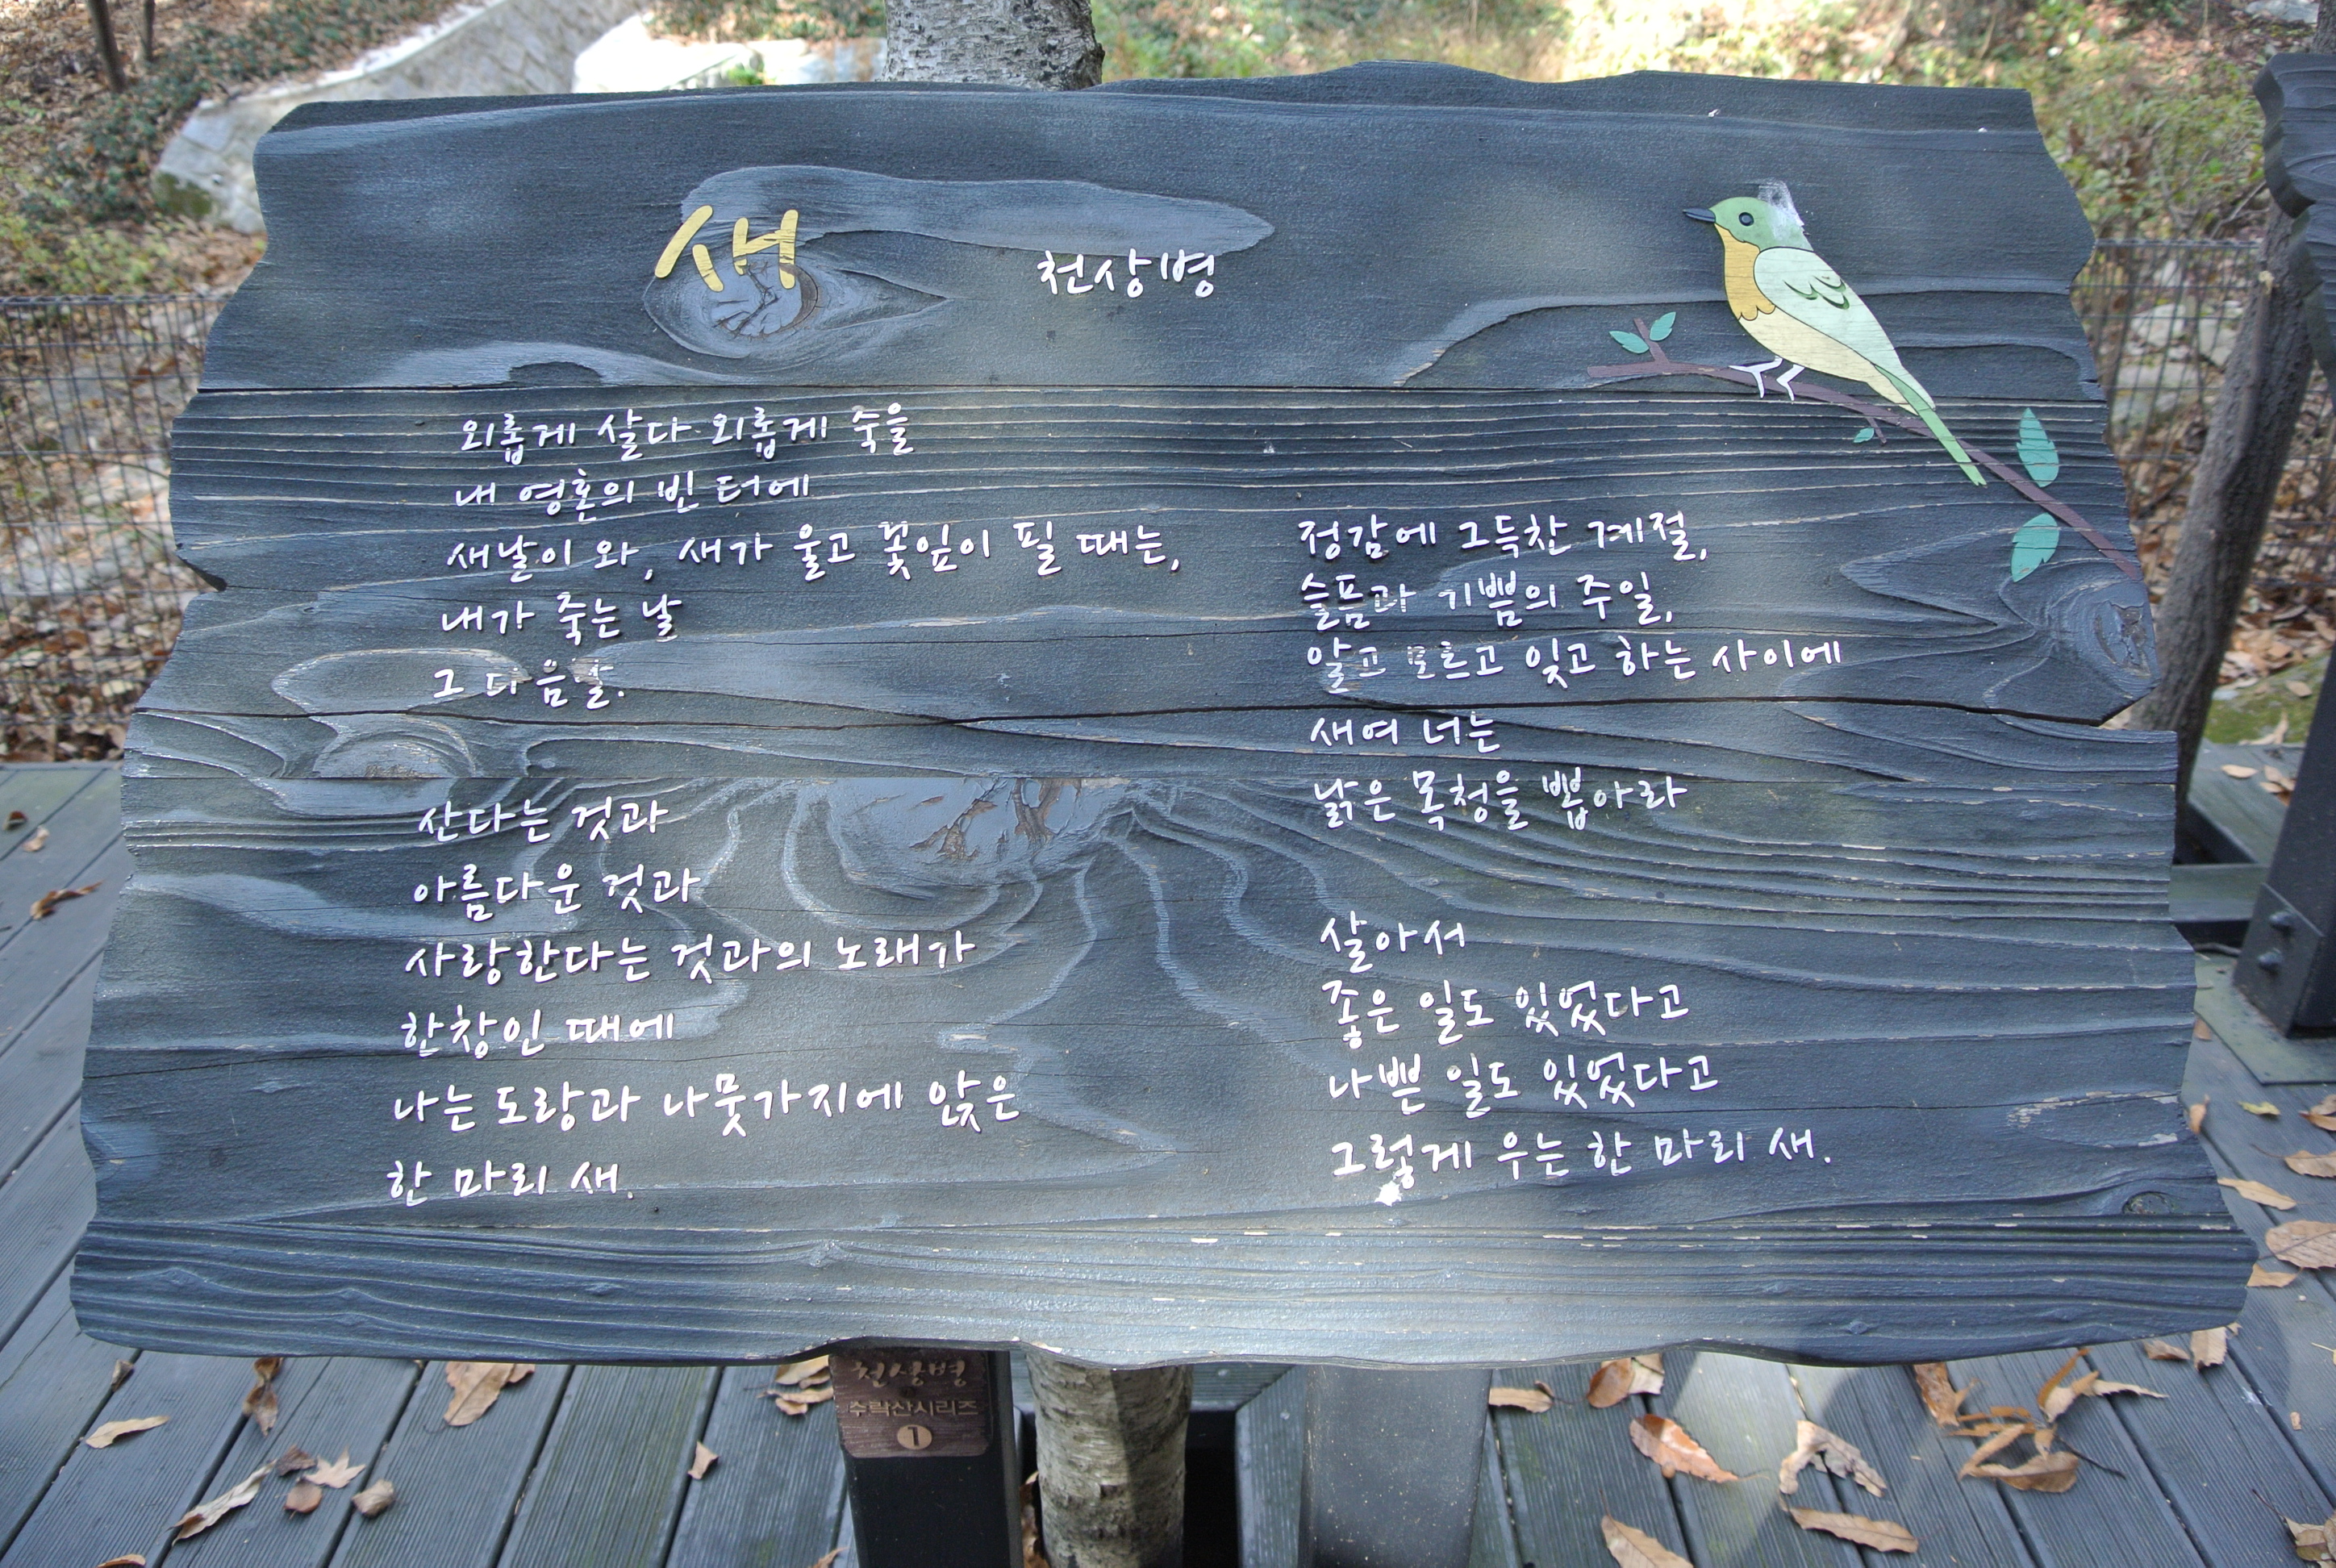 새
천상병
외롭게 살다 외롭게 죽을
내 영혼의 빈 터에
새날이 와, 새가 울고 꽃잎이 필 때는,
내가 죽는 날
그 다음날.
산다는 것과
아름다운 것과
사랑한다는 것과의 노래가
한창인 때에
나는 도랑과 나뭇가지에 앉은
한 마리 새.
정감에 그득찬 계절,
슬픔과 기쁨의 주일,
알고 모르고 잊고 하는 사이에
새여 너는
낡은 목청을 뽑아라
살아서
좋은 일도 있었다고
나쁜 일도 있었다고
그렇게 우는 한 마리 새.
천상병
수락산시리즈
1